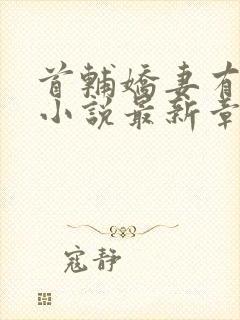 首輔嬌妻有
小說最新章
寇靜